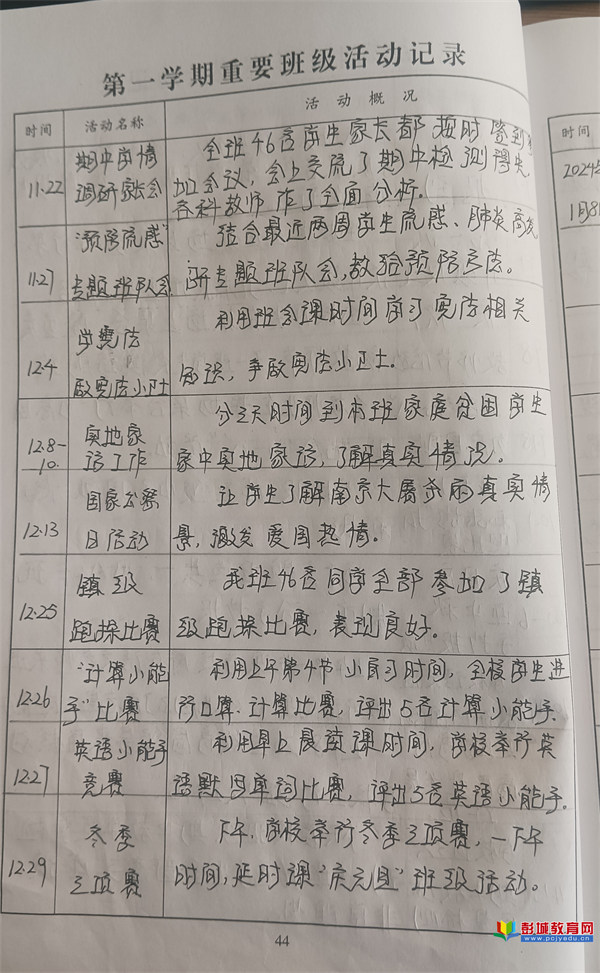 第一学期重要班级活动记录
时间 活动名称 活动概况
11.22 期中学情调研家长会 全班46名学生家长都按时签到
加会议,会上交流了期中检测得失,
各科教师作了全面分析.
11.27 "预防流感"专题班队会 结合最近两周学生流感、肺炎高发
专题班队会,教给预防方法。
12.4 学宪法 利用班会课时间学习宪法相关
宪法小卫士 知识,争做宪法小卫士.
12.8-10. 实地家访工作 分三天时间到本班家庭贫困学生
家中实地家访,了解真实情况。
12.13 国家公祭日活动 让学生了解南京大屠杀的真实情
景,激发爱国热情.
12.25 镇级跑操比赛 我班46名同学全部参加了镇
级跑操比赛,表现良好.
12.26 "计算小能手"比赛 利用上午第4节小自习时间,全校学生进
行口算、计算比赛,评出5名计算小能手.
12.27 英语小能手竞赛 利用早上晨读课时间,学校举行英
语默写单词比赛,评出5名英语小能手.
12.29 冬季三项赛 下午,学校举行冬季三项赛,一下午
时间,延时课"庆元旦"班级活动。
44
时间
2024
1月8
彭城教育网
www.pcjyedu.cn